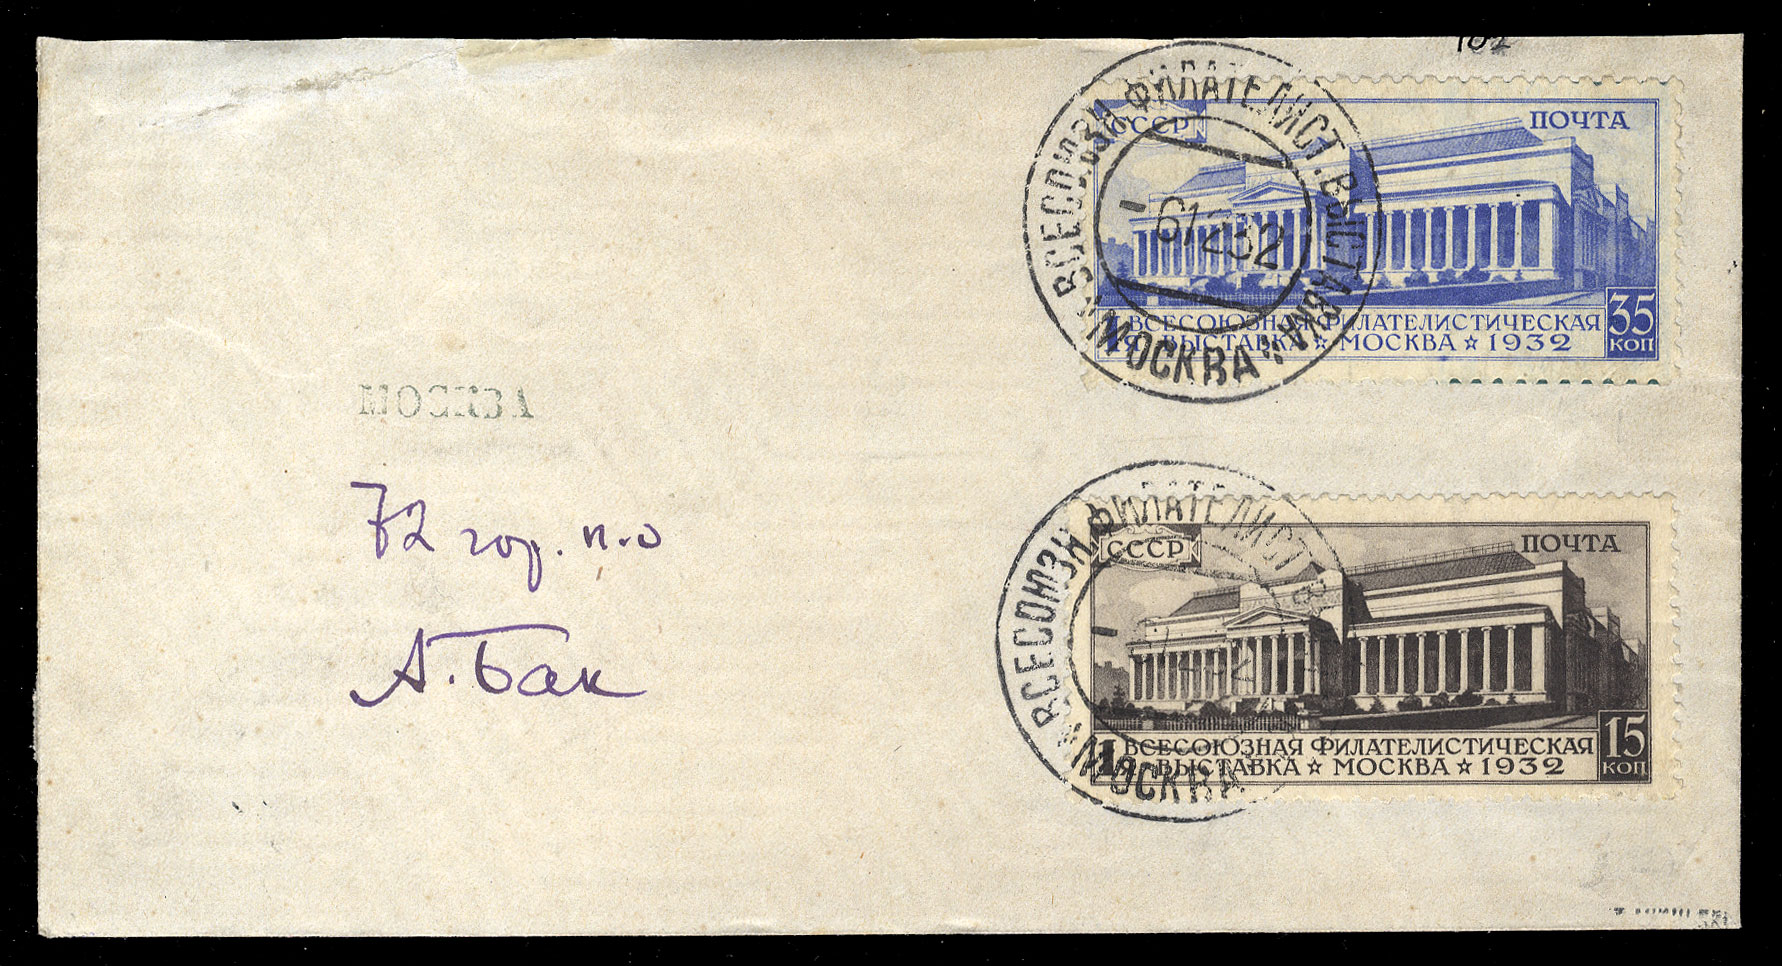 102
СССР
ПОЧТА
ВСЕСОЮЗН. ФИЛАТЕЛИСТ. ВЫСТАВКА
- 6 12 32
МОСКВА
1Я ВСЕСОЮЗНАЯ ФИЛАТЕЛИСТИЧЕСКАЯ
ВЫСТАВКА ☆ МОСКВА ☆ 1932
35
КОП
МОСКВА
72 гор. п.о
А. Бак
СССР
ПОЧТА
ВСЕСОЮЗН ФИЛАТЕЛИСТ В
МОСКВА
1Я ВСЕСОЮЗНАЯ ФИЛАТЕЛИСТИЧЕСКАЯ
ВЫСТАВКА ☆ МОСКВА ☆ 1932
15
КОП